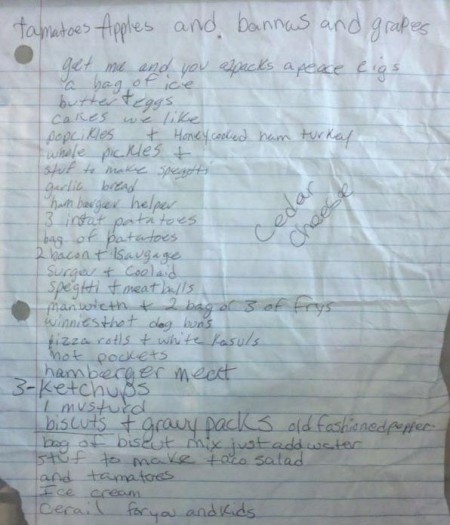 tamatoes Apples and bannas and grapes
get me and you 2packs apeace cigs
a bag of ice
butter + eggs
cakes we like
popcikles + Honeycooked ham turkey
whole pickles +
stuf to make spegitti
garlic bread
hamborger helper
3 instat patatoes
bag of patatoes
Cedar
Cheese
2 bacon + 1 sausgage
Surger + Coolaid
spegitti + meat balls
manwich + 2 bag or 3 of frys
winniesthot dog buns
pizza rolls + white
hot pockets
hamberger meat
3-ketchups
1 musturd
biscuts + gravy packs old fashioned pepper
bag of biscut mix just add water
stuf to make taco salad
and tamatoes
Ice cream
Cerail for you and kids